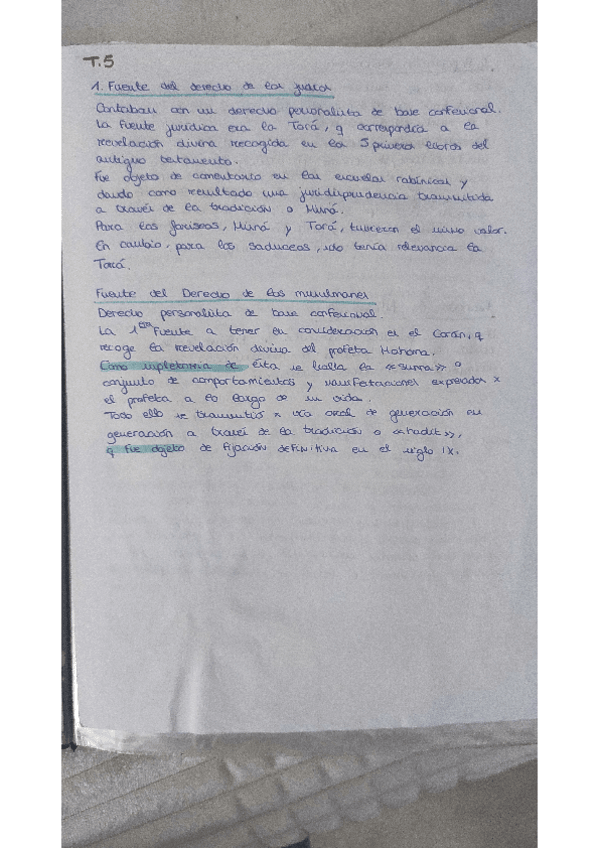 T.5
1. Fuente del derecho de los judios
Contaban con un derecho personalista de base confesional.
La fuente jurídica era la Torá, q correspondía a la
revelación divina recogida en los 5 primeros libros del
antiguo testamento.
Fue objeto de comentario en las escuelas rabínicas y
dando como resultado una juridisprudencia transmitida
a través de la tradición o Misná.
Para los fariseos, Misná y Torá, tuvieron el mismo valor.
En cambio, para los saduceos, sólo tenía relevancia la
Torá.
Fuente del Derecho de los musulmanes
Derecho personalista de base confesional.
La 1era Fuente a tener en consideración es el Corán, q
recoge la revelación divina del profeta Mahoma.
Como supletoria de ésta se halla la «sunna» o
conjunto de comportamientos y manifestaciones x
el profeta a lo largo de su vida.
Todo ello se transmitió x vía oral de generación en
generación a través de la tradición o «hadit»,
q fue objeto de fijación definitiva en el siglo IX.